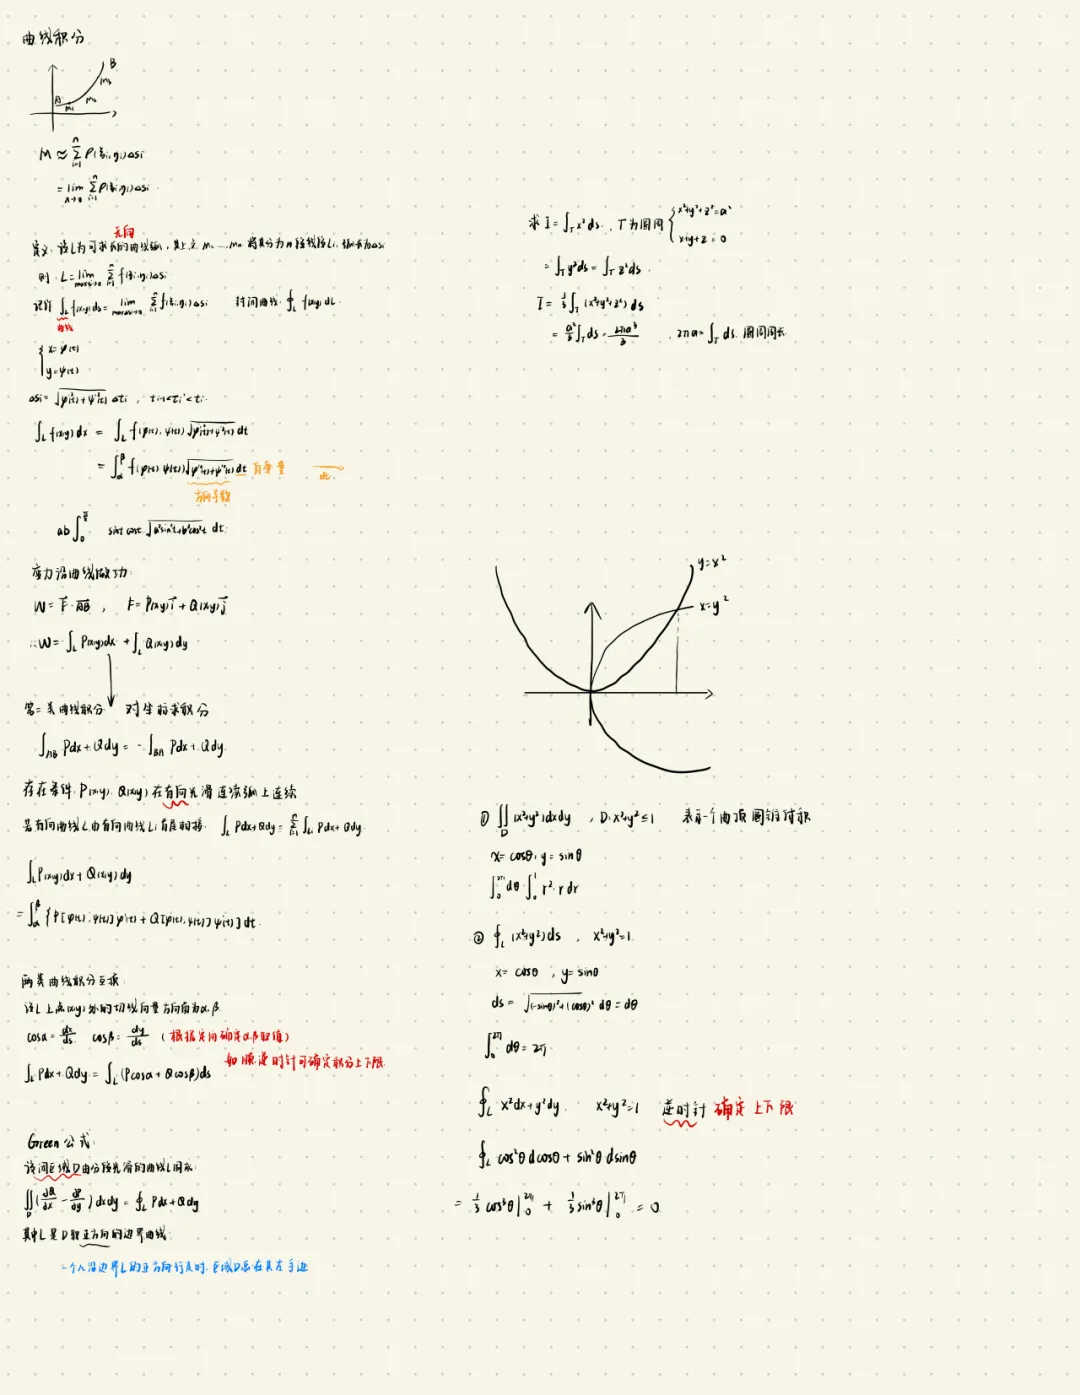 曲线积分
A B
M₁ M₂ M₃
M ≈ Σ_{i=1}^{n} ρ(ξi,ηi)Δsi
= lim_{λ→0} Σ_{i=1}^{n} ρ(ξi,ηi)Δsi
无向
定义: 设L为可求长的曲线弧, 其上点 M₁ … Mn 将其分为n段线段Li, 弧长为Δsi
则 L = lim Σ_{i=1}^{n} f(ξi,ηi)Δsi
记作 ∫_L f(x,y)ds = lim Σ_{i=1}^{n} f(ξi,ηi)Δsi 封闭曲线: ∮_L f(x,y) dL
曲线
{ x=φ(t)
y=ψ(t)
Δsi = √(φ'²(t)+ψ'²(t)) Δti , ti-1<τi'<ti
∫_L f(x,y)dx = ∫_L f(φ(t),ψ(t))√(φ'²(t)+ψ'²(t)) dt
= ∫_α^β f(φ(t),ψ(t))√(φ'²(t)+ψ'²(t)) dt 自变量 dt
方向导数
ab∫_0^{π/2} sint cost √(a²sin²t+b²cos²t) dt
变力沿曲线做功:
W = F⃗·AB⃗ , F = P(x,y)i⃗ + Q(x,y)j⃗
∴W = ∫_L P(x,y)dx + ∫_L Q(x,y)dy
第二类曲线积分 对坐标求积分
∫_AB Pdx+Qdy = -∫_BA Pdx+Qdy
存在条件: P(x,y), Q(x,y) 在有向光滑连续弧上连续
若有向曲线L由有向曲线Li首尾相接. ∫_L Pdx+Qdy = Σ_{i=1}^{n} ∫_Li Pdx+Qdy
∫_L P(x,y)dx + Q(x,y)dy
= ∫_α^β {P[φ(t),ψ(t)]φ'(t) + Q[φ(t),ψ(t)]ψ'(t)} dt
两类曲线积分互换
设L上点(x,y)处的切线向量方向角为α,β
cosα = dx/ds cosβ = dy/ds (根据定向确定α,β取值)
如顺逆时针可确定积分上下限
∫_L Pdx+Qdy = ∫_L (Pcosα + Qcosβ)ds
Green公式:
设闭区域D由分段光滑的曲线L围成
∬_D (∂Q/∂x - ∂P/∂y) dxdy = ∮_L Pdx+Qdy
其中L是D取正方向的边界曲线
一个人沿边界L的正方向行走时, 区域D总在其左手边
求 I = ∫_Γ x²ds, Γ为圆周 { x²+y²+z²=a²
x+y+z=0
= ∫_Γ y²ds = ∫_Γ z²ds
I = 1/3 ∫_Γ (x²+y²+z²) ds
= a²/3 ∫_Γ ds = 2πa³/3 , 2πa = ∫_Γ ds 圆周周长
y=x²
x=y²
① ∬_D (x²+y²)dxdy , D: x²+y²≤1 表示一个曲顶圆锥体积
x=cosθ, y=sinθ
∫_0^{2π} dθ·∫_0^1 r²·r dr
② ∮_L (x²+y²)ds , x²+y²=1
x=cosθ , y=sinθ
ds = √((-sinθ)²+(cosθ)²) dθ = dθ
∫_0^{2π} dθ = 2π
∮_L x²dx+y²dy. x²+y²=1 逆时针 确定上下限
∮_L cos²θ dcosθ + sin²θ dsinθ
= 1/3 cos³θ|_0^{2π} + 1/3 sin³θ|_0^{2π} = 0